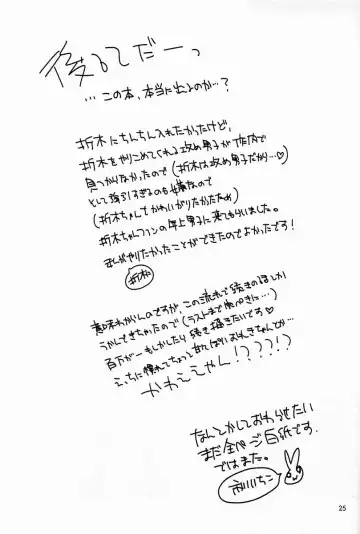 後るてだーっ
…この本、本当に出るのか…？
折木にちんちん入れたかったけど、
折木をやりこめてくれる攻め男子が作内で
見つからなかったので（折木は攻め男子だから…♡）
として強引すぎるのも嫌なので
（折木ちゃんてかわいがりたかったため）
折木ちゃんファンの年上男子に来てもらいました。
私がやりたかったことができたのでよかったです！
折木
意味わからんのですが、この流れで続きのほしか
うかんできちゃったので（ラストまで
百万が一もしかしたら続き描きたいです♡
こっちに慣れてちょっと甘えっぱいおれきちゃんとか…
かわええやん！？？？！？
なんとかしておわらせたい
まだ全ページ白紙です。
ではまた。
25